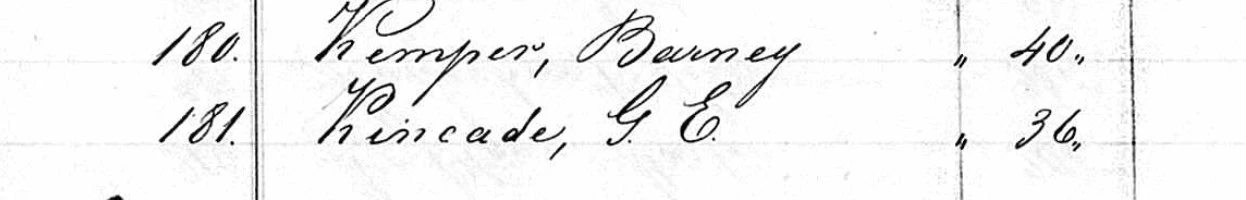 180. Kemper, Barney „ 40„
181. Kincade, G. E. „ 36„